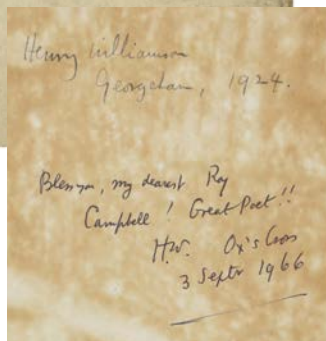 Henry Williamson
Georgeham, 1924.
Bless you, my dearest Roy
Campbell! Great Poet!!
H.W. Ox's Cross
3 Septr 1966